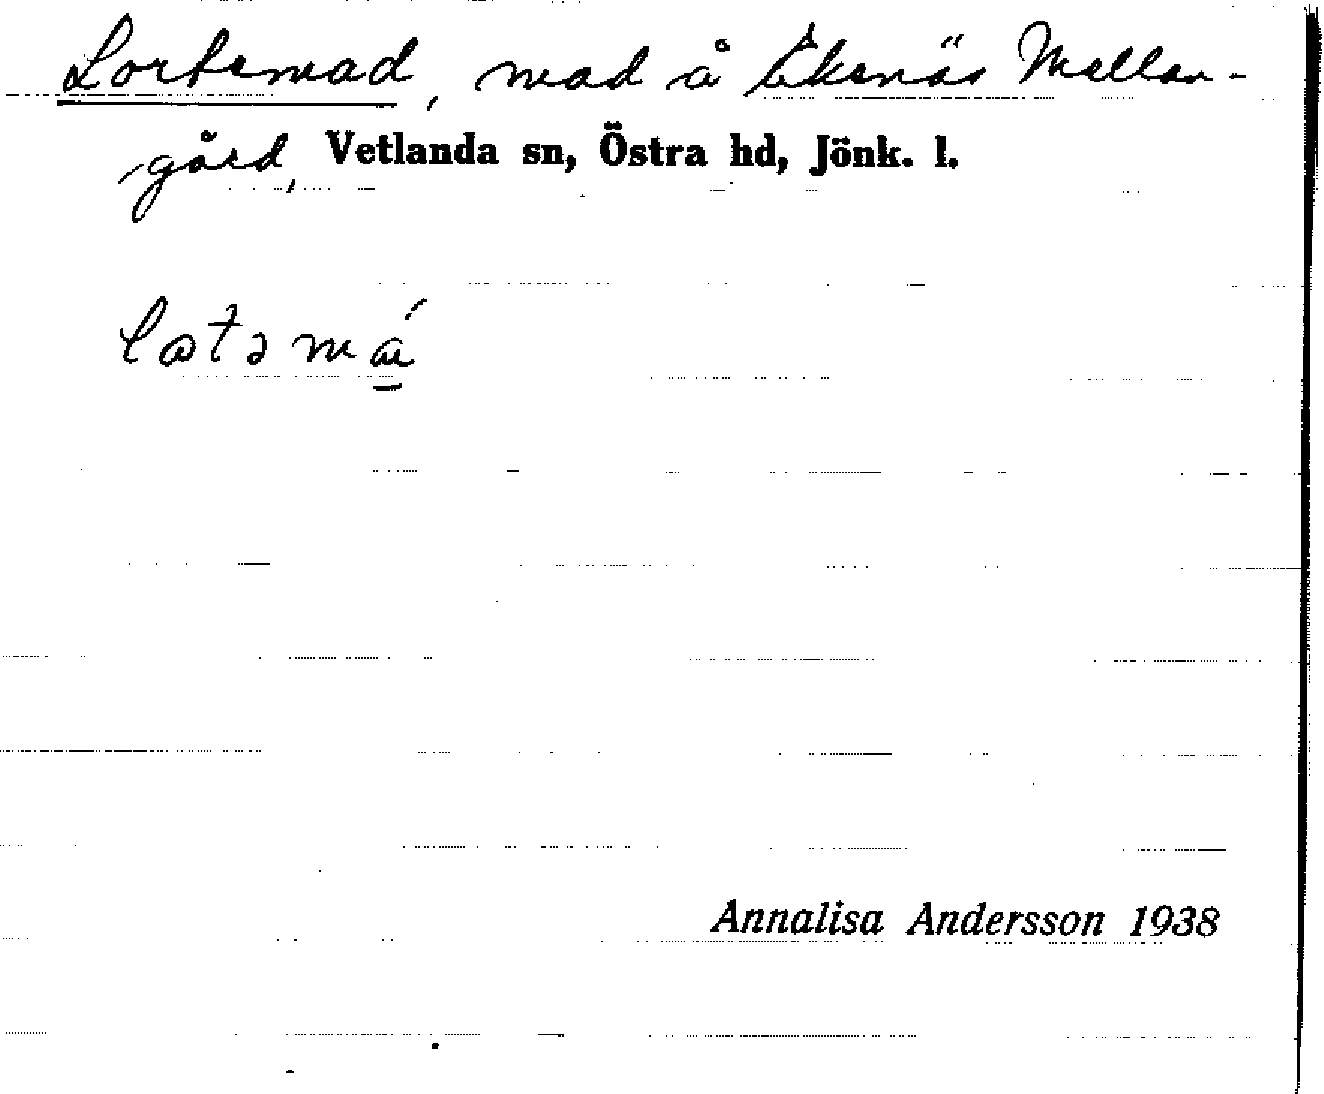 Lortemad, mad å Ekenäs Mellan-
gård, Vetlanda sn, Östra hd, Jönk. l.
Annalisa Andersson 1938